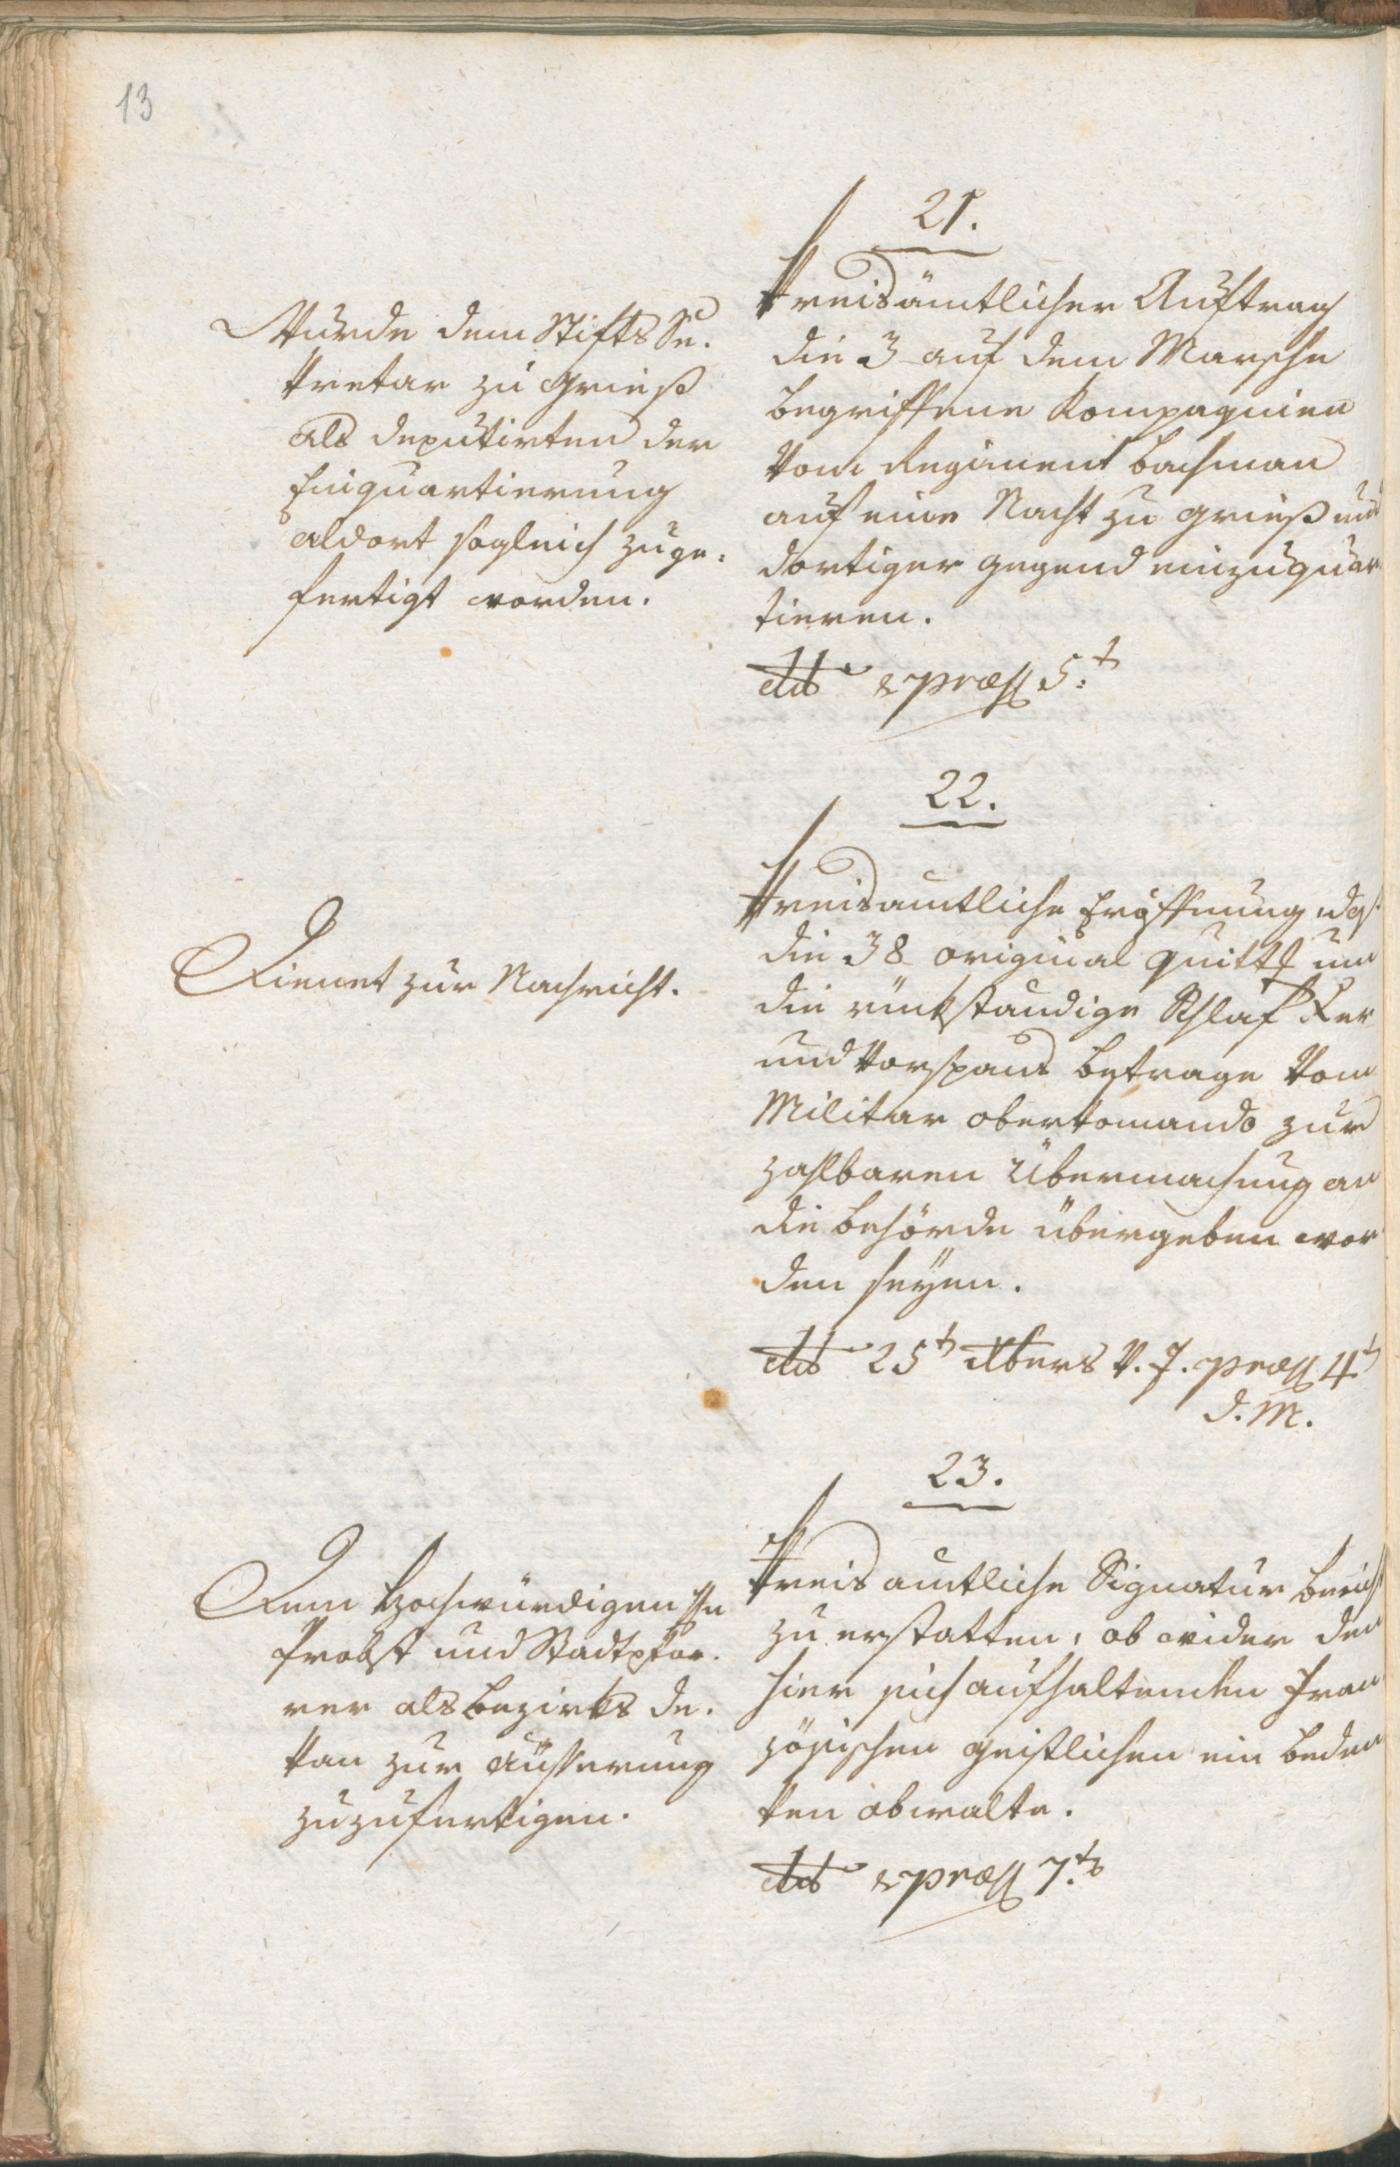 13
21.
Kreisämtlicher Auftrag
die 3 auf dem Marsche
begriffene Kompagnien
vom Regiment Bachman
auf eine Nacht zu Grieß und
dortiger Gegend einzuquar
tieren.
dto & præs 5t
Wurde dem Stifts Se-
kretar zu Grieß
als deputirten der
Einquartierung
aldort sogleich zuge-
fertigt worden.
22.
Kreisamtliche Eröffnung, das
die 38 original Quitt um
die rückständige Schlaf Kr
und Vorspans betrage vom
Militar oberkomando zur
zahlbaren Übermachung an
die behörde übergeben wor
den seyen.
dto 25t Xbers v. J. præs 4t
d. M.
Dienet zur Nachricht.
23.
Kreisamtliche Signatur Bericht
zu erstatten, ob wider den
hier sich aufhaltenden fran
zösischen geistlichen ein beden
ken obwalte.
dto & præs 7t
Dem Hochwürdigen He
Probst und Stadtpfar-
rer als Bezirks De-
kan zur äusserung
zuzufertigen.